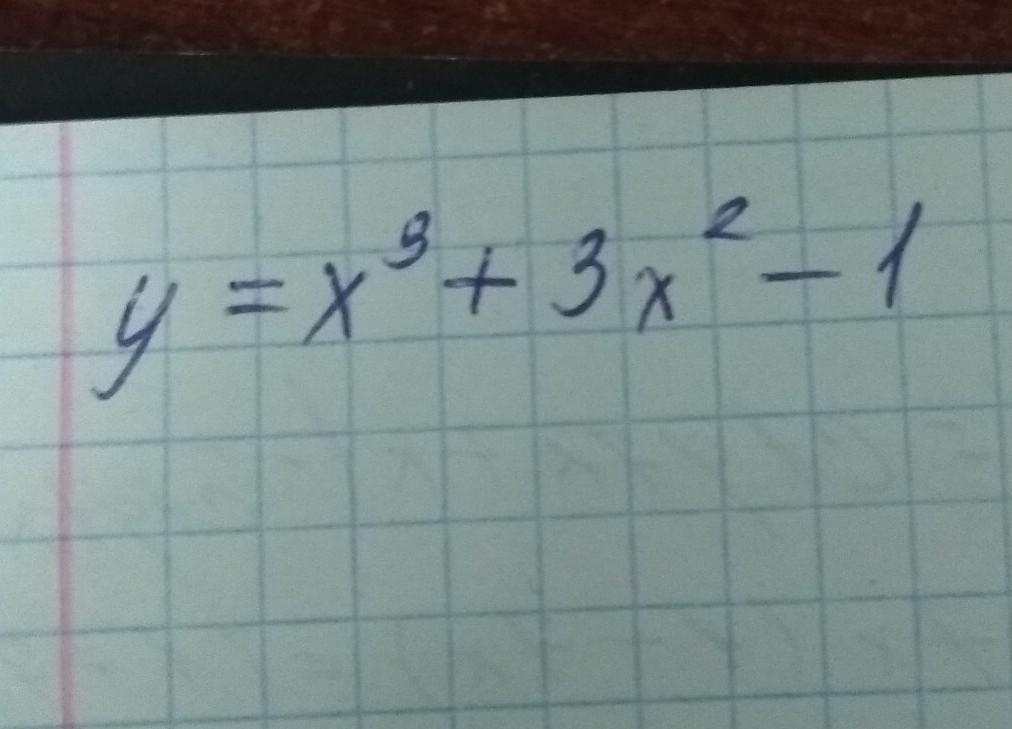 y = x³ + 3x² - 1